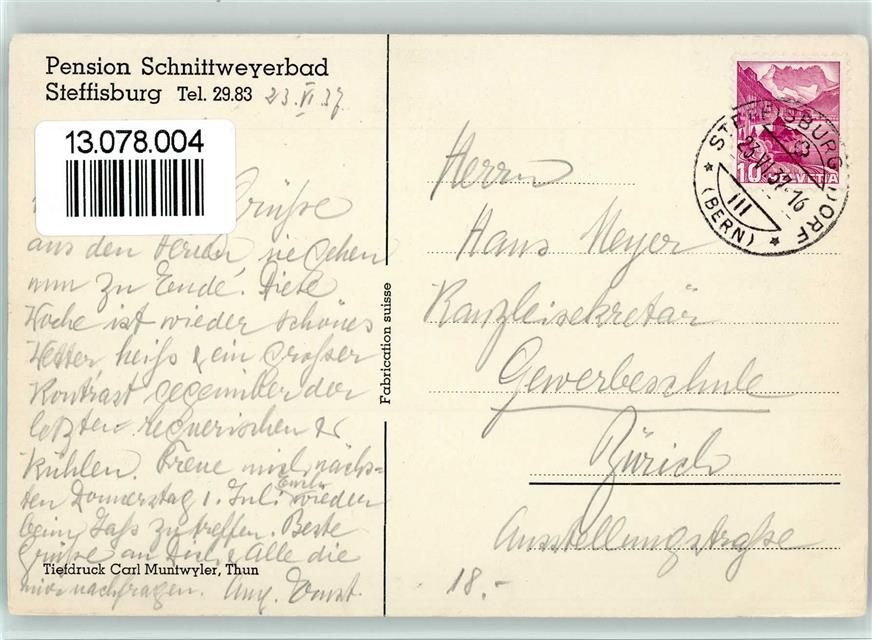 Pension Schnittweyerbad
Steffisburg Tel. 29.83 23.VI 37
13.078.004
Grüsse
aus den Ferien, sie gehen
nun zu Ende. Diese
Woche ist wieder schönes
Wetter, heiss & ein grosser
Kontrast gegenüber der
letzten regnerischen &
kühlen. Freue mich, nächs-
ten Donnerstag 1. Juli Euch wieder
beim Jass zu treffen. Beste
Grüsse an Dich & Alle die
mir nachfragen.
Tiefdruck Carl Muntwyler, Thun
Fabrication suisse
10 HELVETIA
STEFFISBURG DORF
23.VI.37.16
III
(BERN)
Herrn
Hans Meyer
Kanzleisekretär
Gewerbeschule
Zürich
Ausstellungstraße
18.-